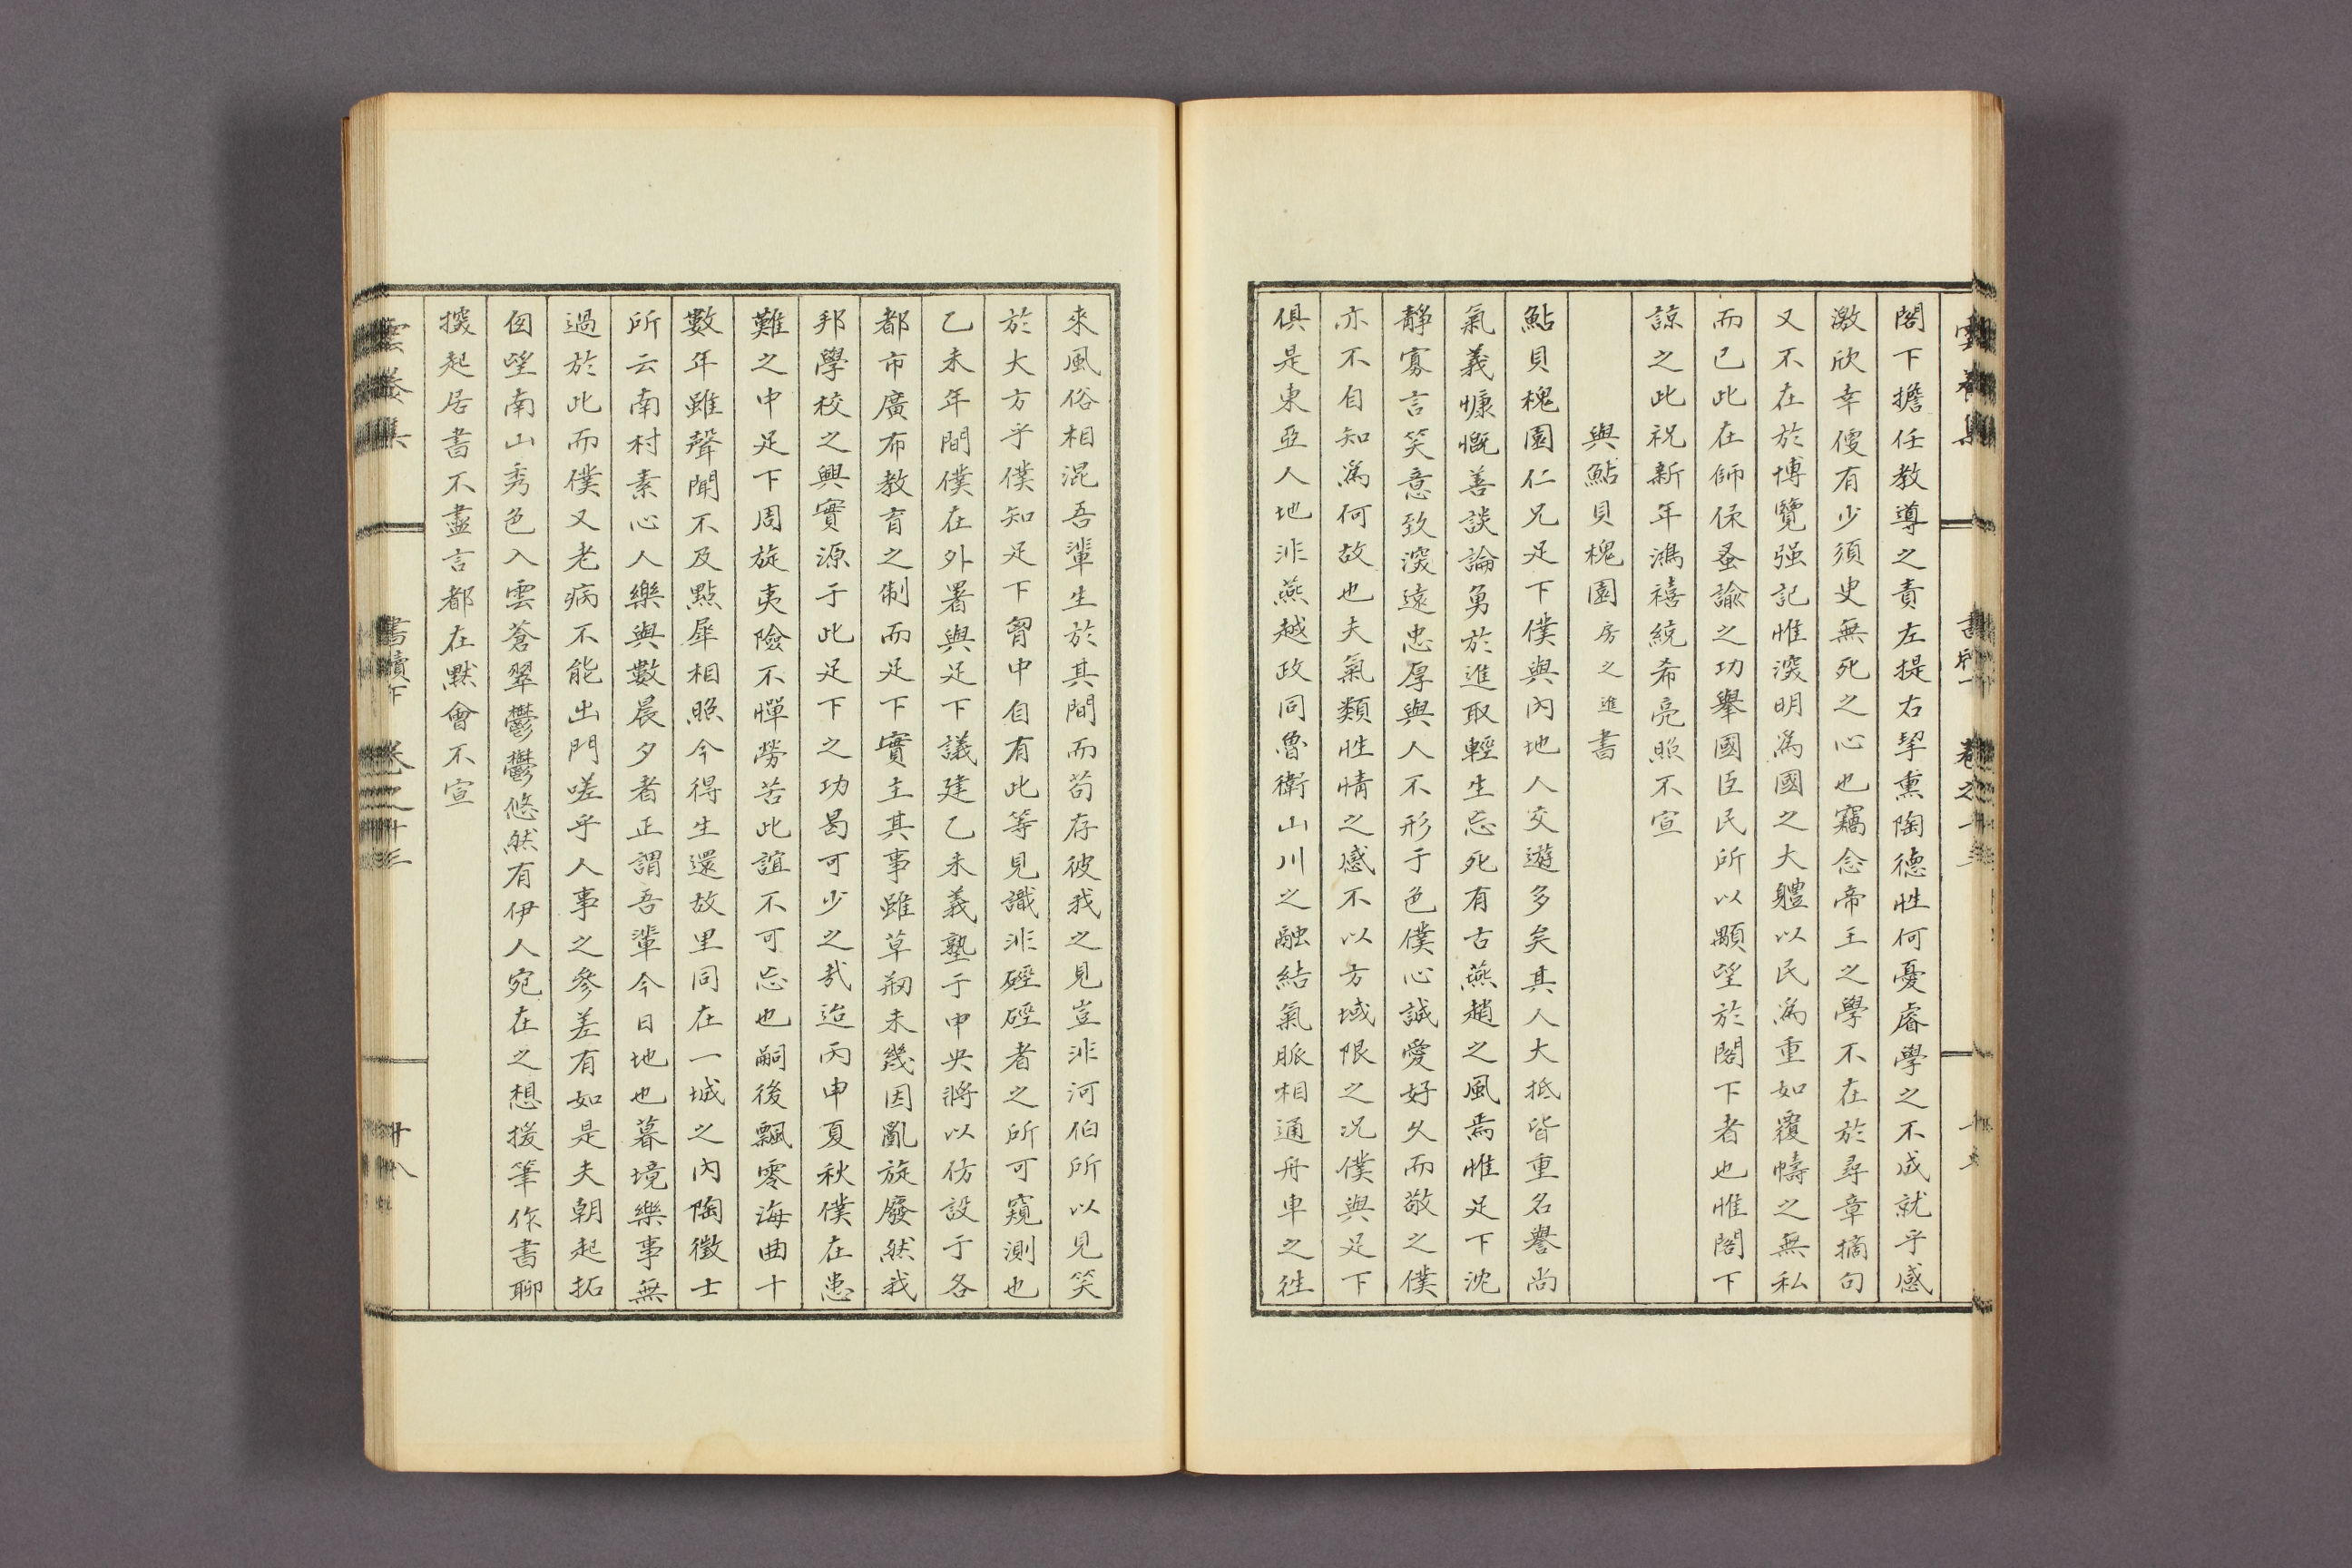 閣下擔任教導之責左提右挈熏陶德性何憂睿學之不成就乎感
激欣幸僾有少須臾無死之心也竊念帝王之學不在於尋章摘句
又不在於博覽强記惟深明爲國之大軆以民爲重如覆幬之無私
而已此在師保蚤諭之功擧國臣民所以顒望於閣下者也惟閣下
諒之此祝新年鴻禧統希亮照不宣
與鮎貝槐園房之進書
鮎貝槐園仁兄足下僕與內地人交遊多矣其人大抵皆重名譽尚
氣義慷慨善談論勇於進取輕生忘死有古燕趙之風焉惟足下沈
靜寡言笑意致深遠忠厚與人不形于色僕心誠愛好久而敬之僕
亦不自知爲何故也夫氣類性情之感不以方域限之况僕與足下
俱是東亞人地非燕越政同魯衛山川之融結氣脈相通舟車之徃
來風俗相混吾輩生於其間而苟存彼我之見豈非河伯所以見笑
於大方乎僕知足下胷中自有此等見識非硜硜者之所可窺測也
乙未年間僕在外署與足下議建乙未義塾于中央將以仿設于各
都市廣布教育之制而足下實主其事雖草刱未幾因亂旋廢然我
邦學校之興實源于此足下之功曷可少之㢤迨丙申夏秋僕在患
難之中足下周旋夷險不憚勞苦此誼不可忘也嗣後飄零海曲十
數年雖聲聞不及點犀相照今得生還故里同在一城之內陶徵士
所云南村素心人樂與數晨夕者正謂吾輩今日地也暮境樂事無
過於此而僕又老病不能出門嗟乎人事之參差有如是夫朝起拓
囪望南山秀色入雲蒼翠鬱鬱悠然有伊人宛在之想援筆作書聊
擬起居書不盡言都在默會不宣
雲養集 書牘下 卷之十三 廿八